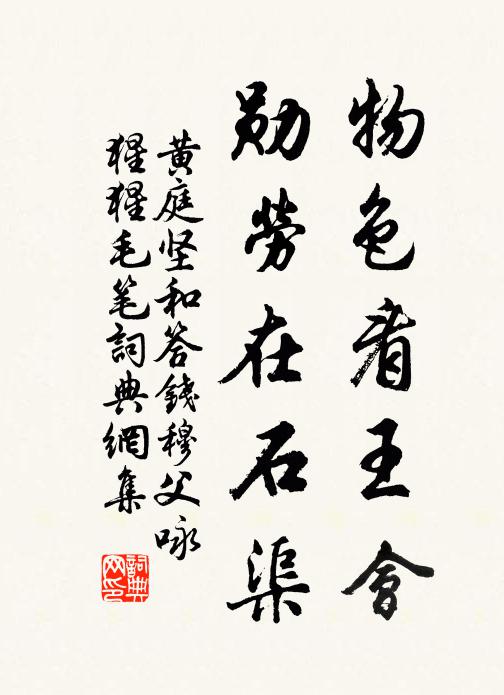 物色看王會
勛勞在石渠
黄庭坚和答錢穆父咏
猩猩毛笔詞典網集
詞典
网印